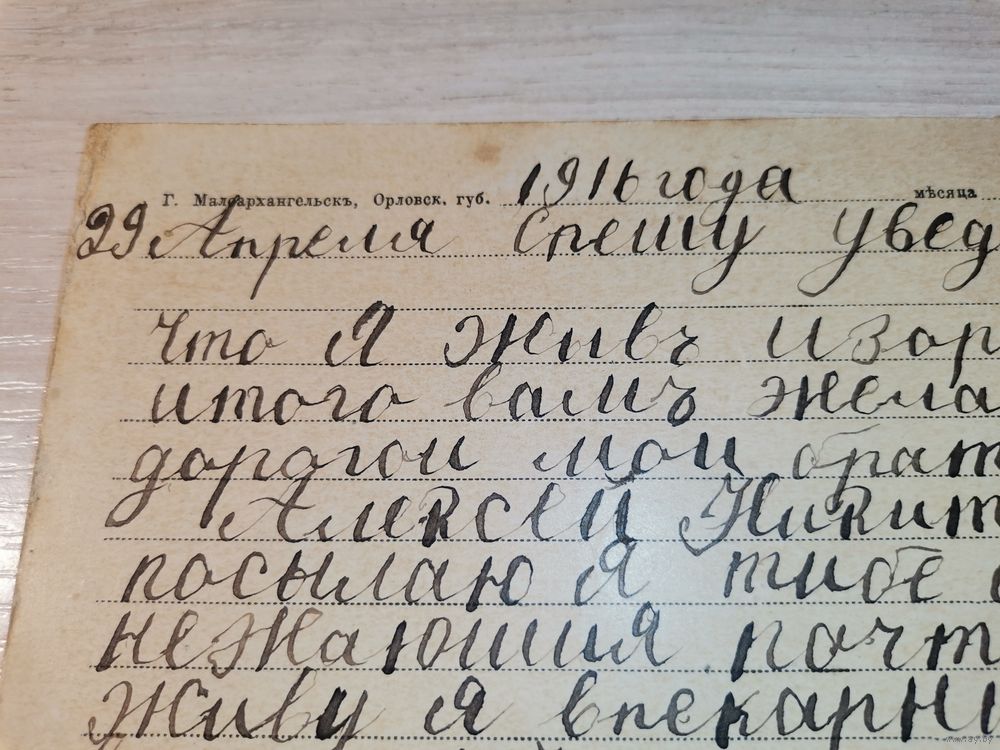 Г. Малоархангельскъ, Орловск. губ. 1916 года мѣсяца
29 Апреля Спешу Увед
что Я Живъ И зор
итого вамъ жела
дорогои мои брат
Алексей Никит
посылаю Я тибе
нежаюшшия почт
Живу Я впекарни